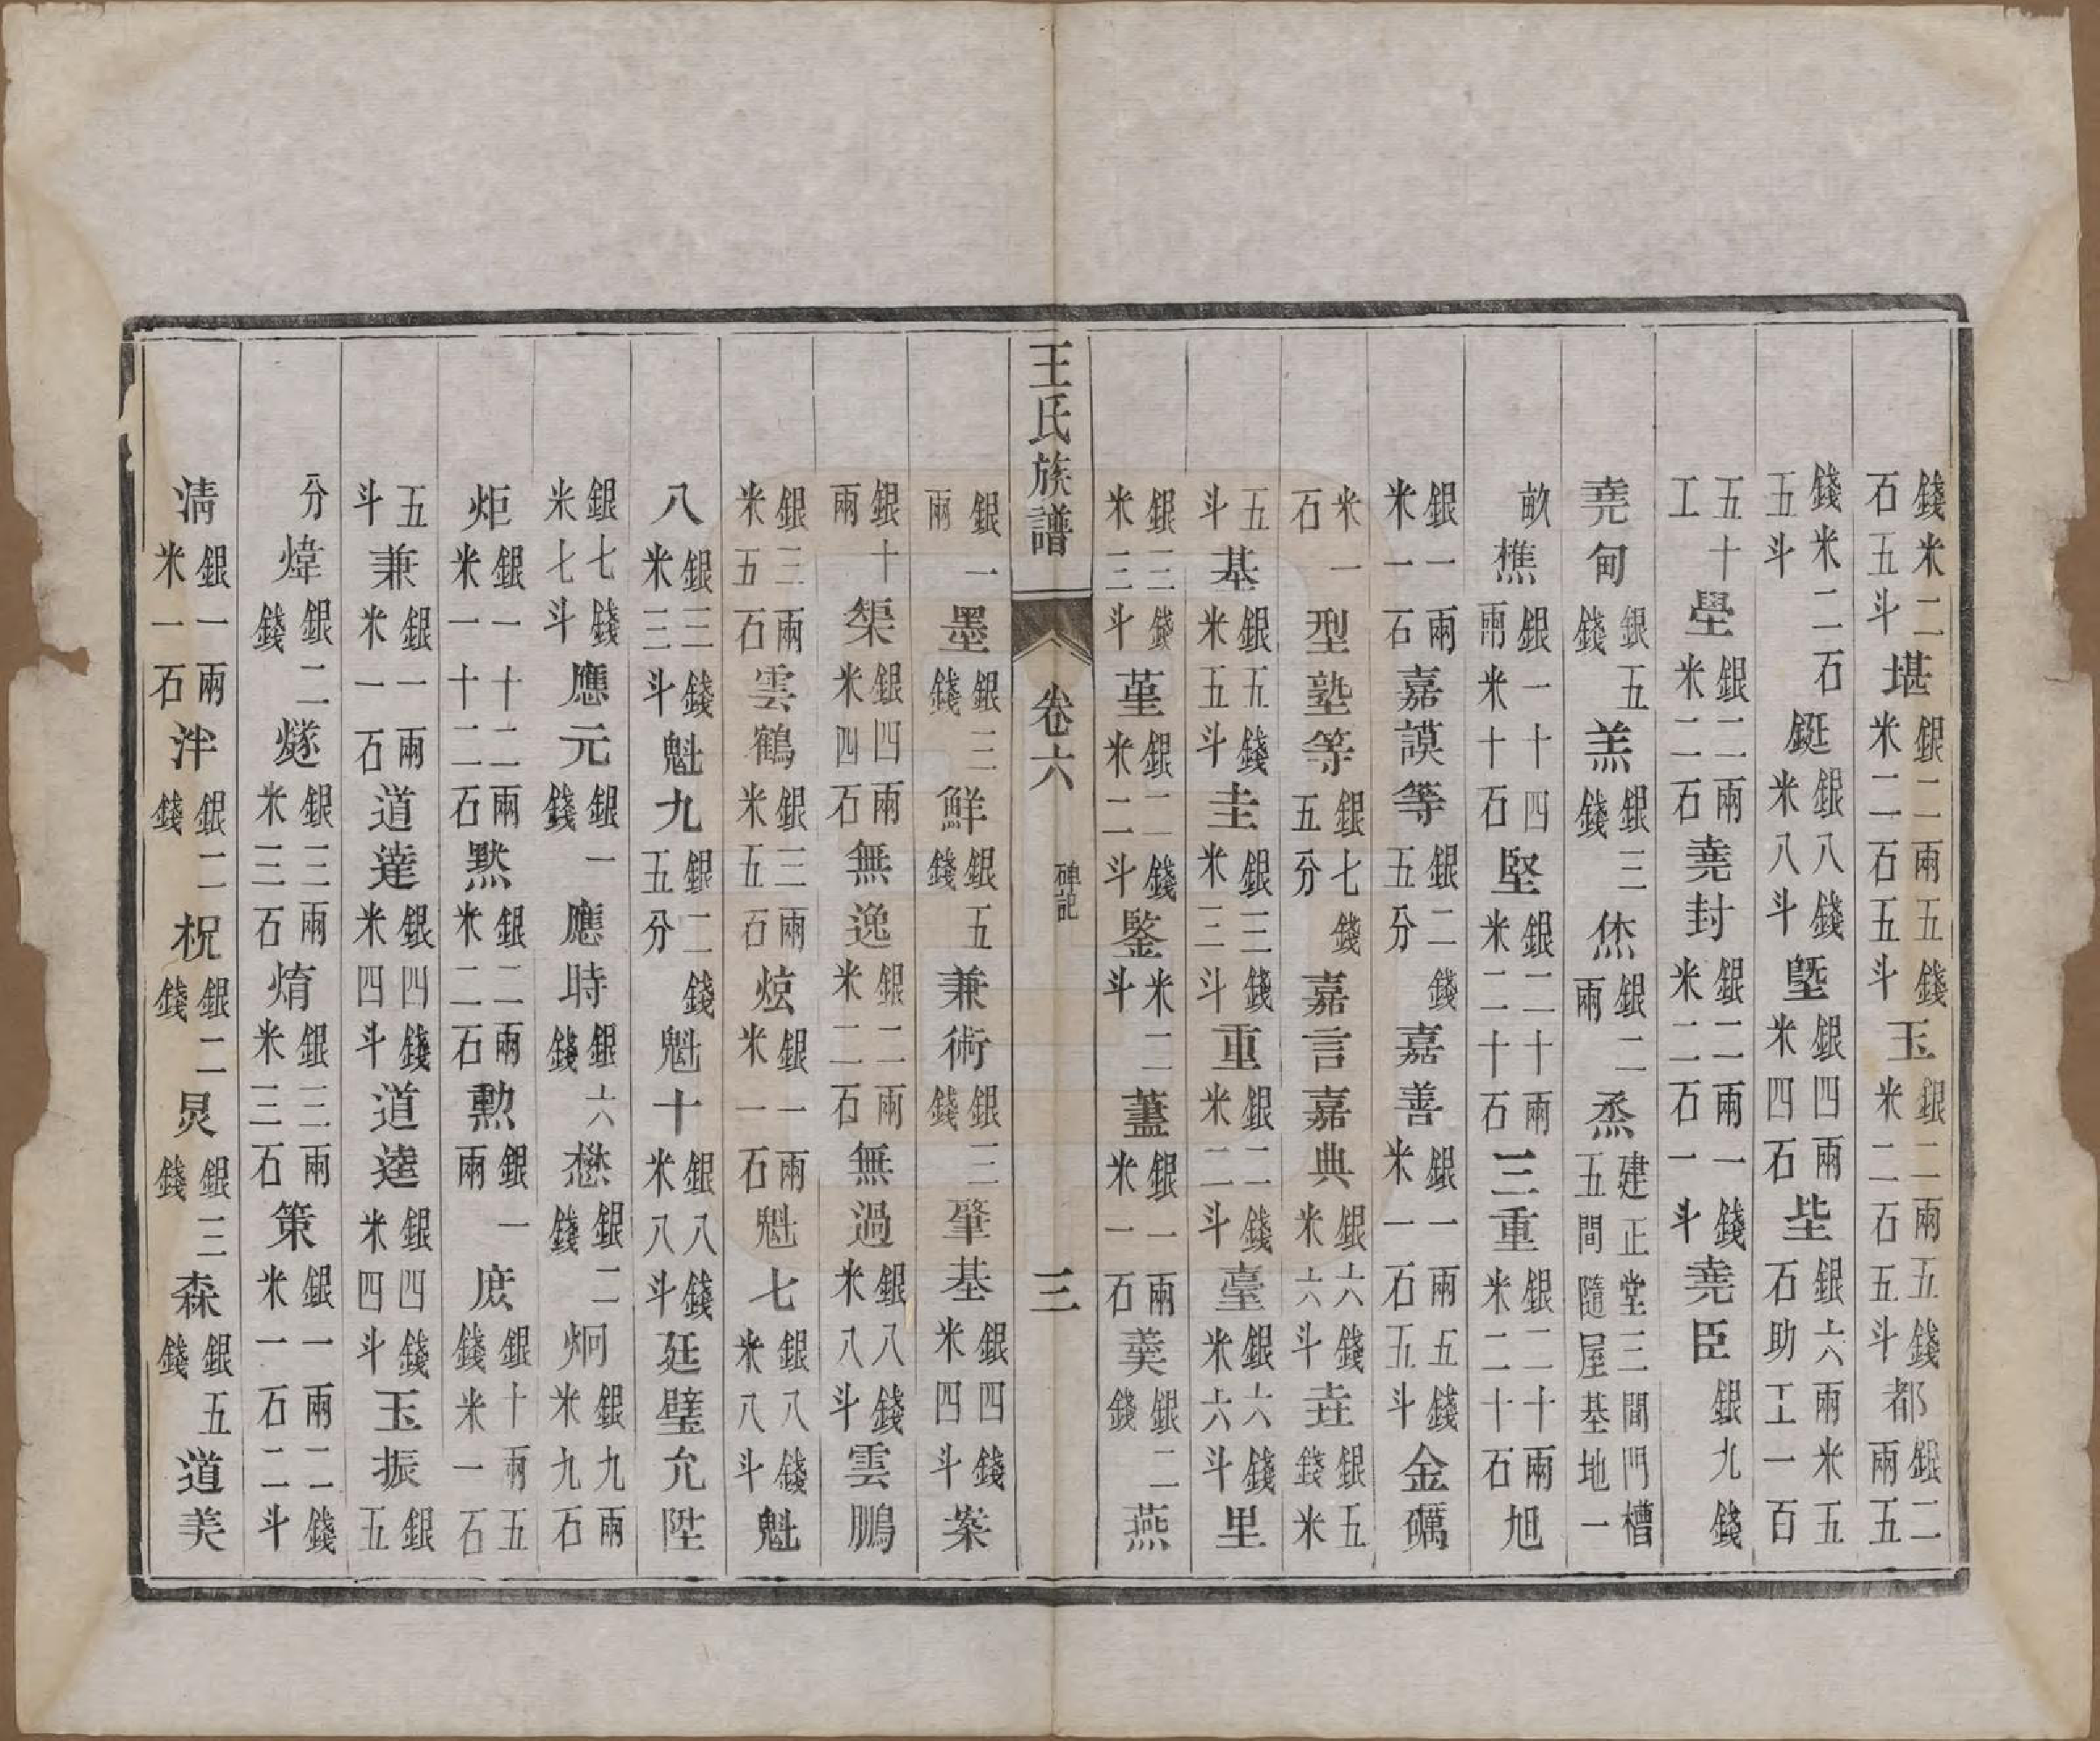 錢米二石五斗堪銀二兩五錢米二石五斗玉銀二兩五錢米二石五斗都銀二兩五
錢米二石五斗鋋銀八錢米八斗塈銀四兩米四石坒銀六兩米五石助工一百
五十工壆銀二兩米二石堯封銀二兩一錢米二石一斗堯臣銀九錢
堯甸銀五錢羔銀三錢烋銀二兩烝建正堂三間門槽五間隨屋基地一
畝樵銀一十四兩米十石堅銀二十兩米二十石三重銀二十兩米二十石旭
銀一兩米一石嘉謨等銀二錢五分嘉善銀一兩五錢米一石五斗金礪
米一石型塾等銀七錢五分嘉言嘉典銀六錢米六斗垚銀五錢米
五斗基銀五錢米五斗圭銀三錢米三斗重銀二錢米二斗臺銀六錢米六斗里
銀三錢米三斗堇銀二錢米二斗鋻米二斗藎銀一兩米一石羹銀二錢燕
王氏族譜 卷六 碑記 三
銀一兩墨銀三錢鮮銀五錢兼術銀三錢肇基銀四錢米四斗寀
銀十兩榘銀四兩米四石無逸銀二兩米二石無過銀八錢米八斗雲鵬
銀三兩米五石雲鶴銀三兩米五石炫銀一兩米一石魁七銀八錢米八斗魁
八銀三錢米三斗魁九銀二錢五分魁十銀八錢米八斗廷璧允陞
銀七錢米七斗應元銀一錢應時銀六錢懋銀二錢炯銀九兩米九石
炬銀一十二兩米一十二石默銀二兩米二石勲銀一兩庶銀十兩五錢米一石
五斗兼銀一兩米一石道達銀四錢米四斗道逵銀四錢米四斗玉振銀五
分煒銀二錢燧銀三兩米三石焴銀三兩米三石策銀一兩二錢米一石二斗
清銀一兩米一石泮銀二錢柷銀二錢炅銀三錢森銀五錢道美